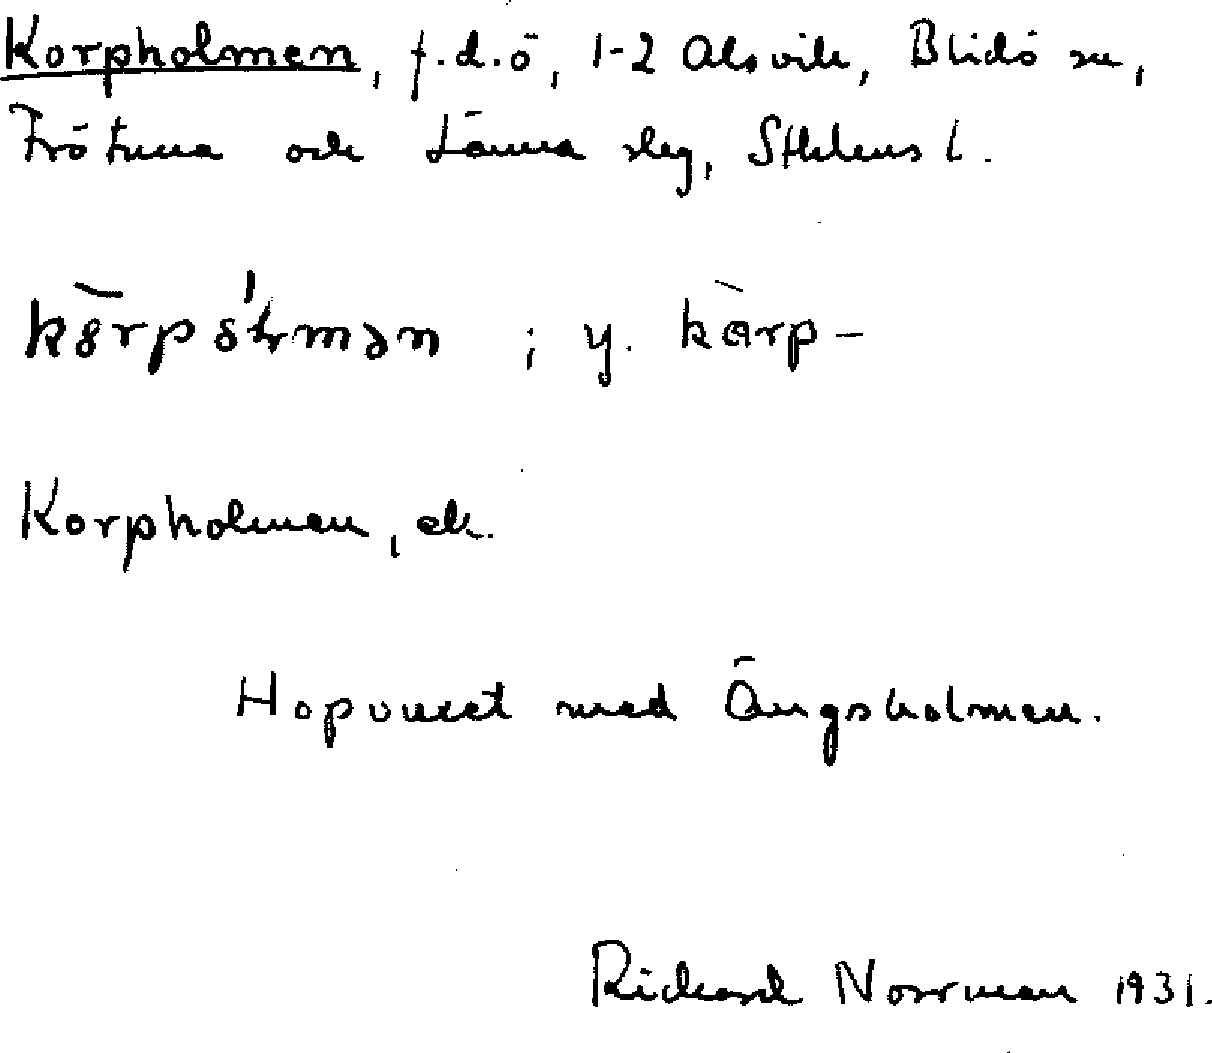 Korpholmen, f.d.ö, 1-2 Alsvik, Blidö sn,
Frötuna och Länna slg, Sthlms l.
; y.
Korpholmen, ek.
Hopvuxet med Ängsholmen.
Rickard Norrman 1931.